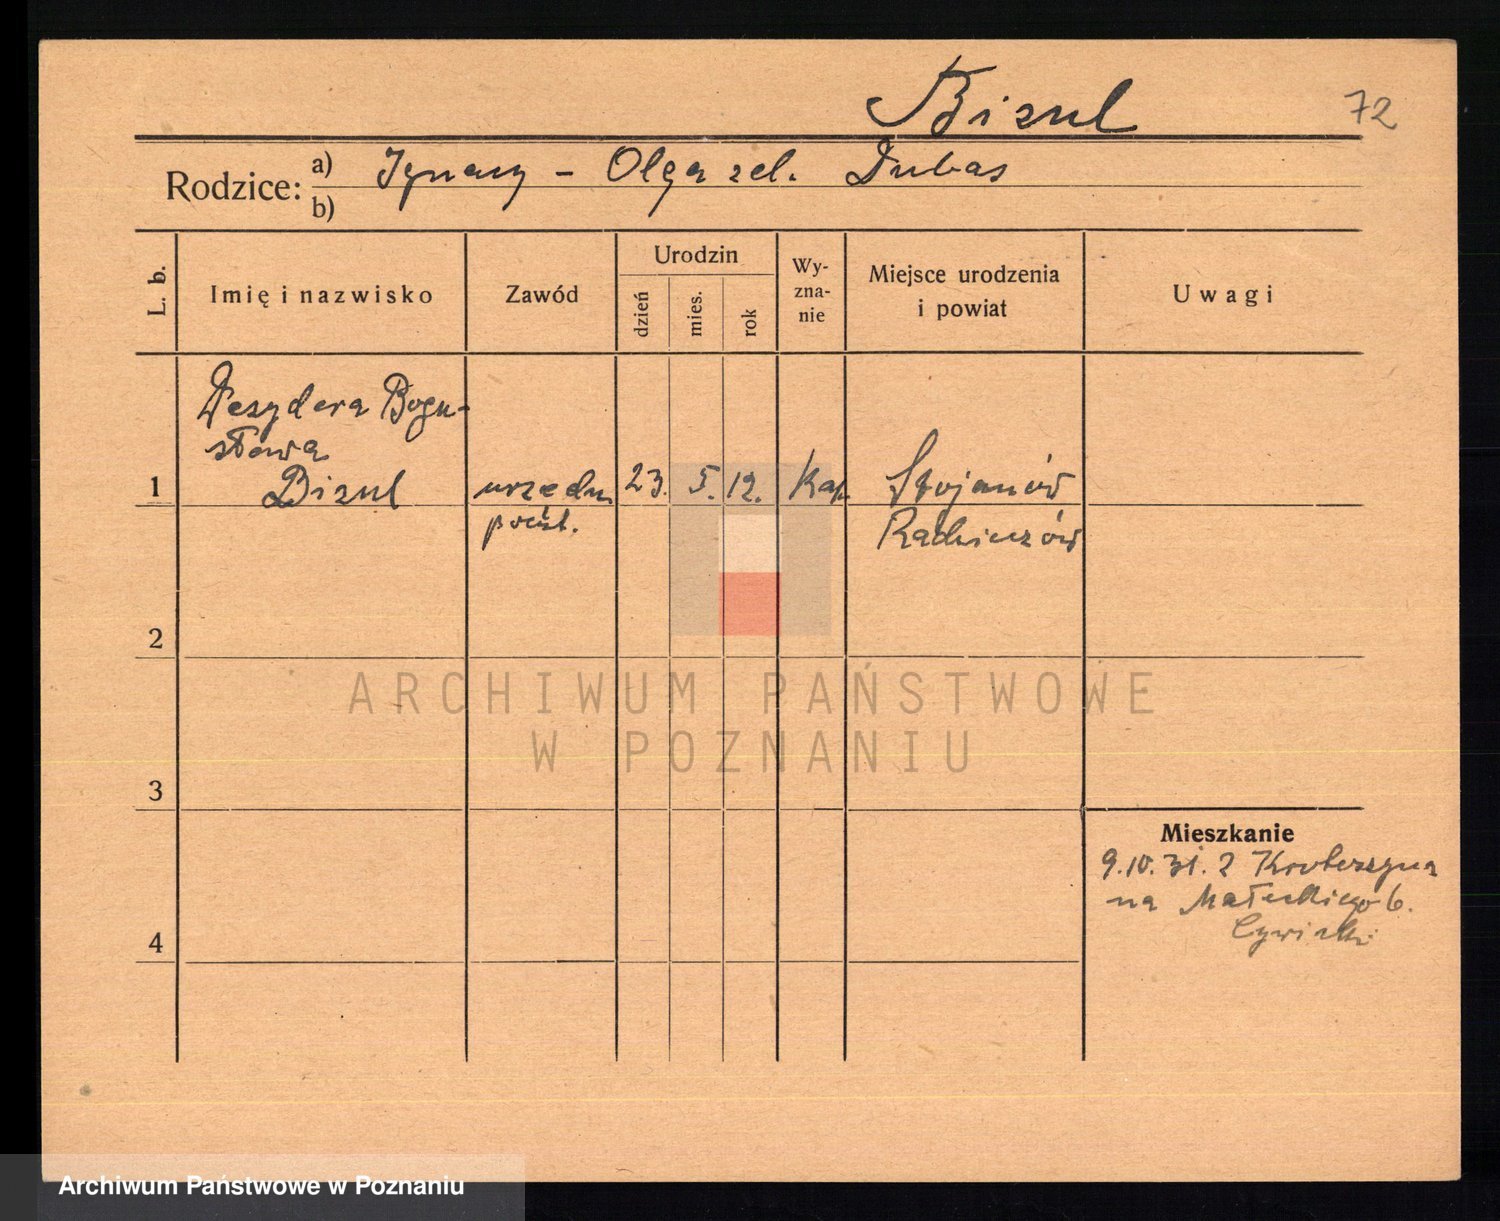 Bizul
72
Rodzice: a) Ignacy – Olga zd. Dubas
b)
L. b. Imię i nazwisko Zawód Urodzin dzień mies. rok Wyznanie Miejsce urodzenia i powiat Uwagi
Dezydera Bogu-
sława
1 Bizul urzedn. 23. 5. 12. Kat. Stojanów
poczt. Radziechów
2
3
Mieszkanie
9.10.31. z Krotoszyna
na Małeckiego 6.
4
ARCHIWUM PAŃSTWOWE
W POZNANIU
Archiwum Państwowe w Poznaniu